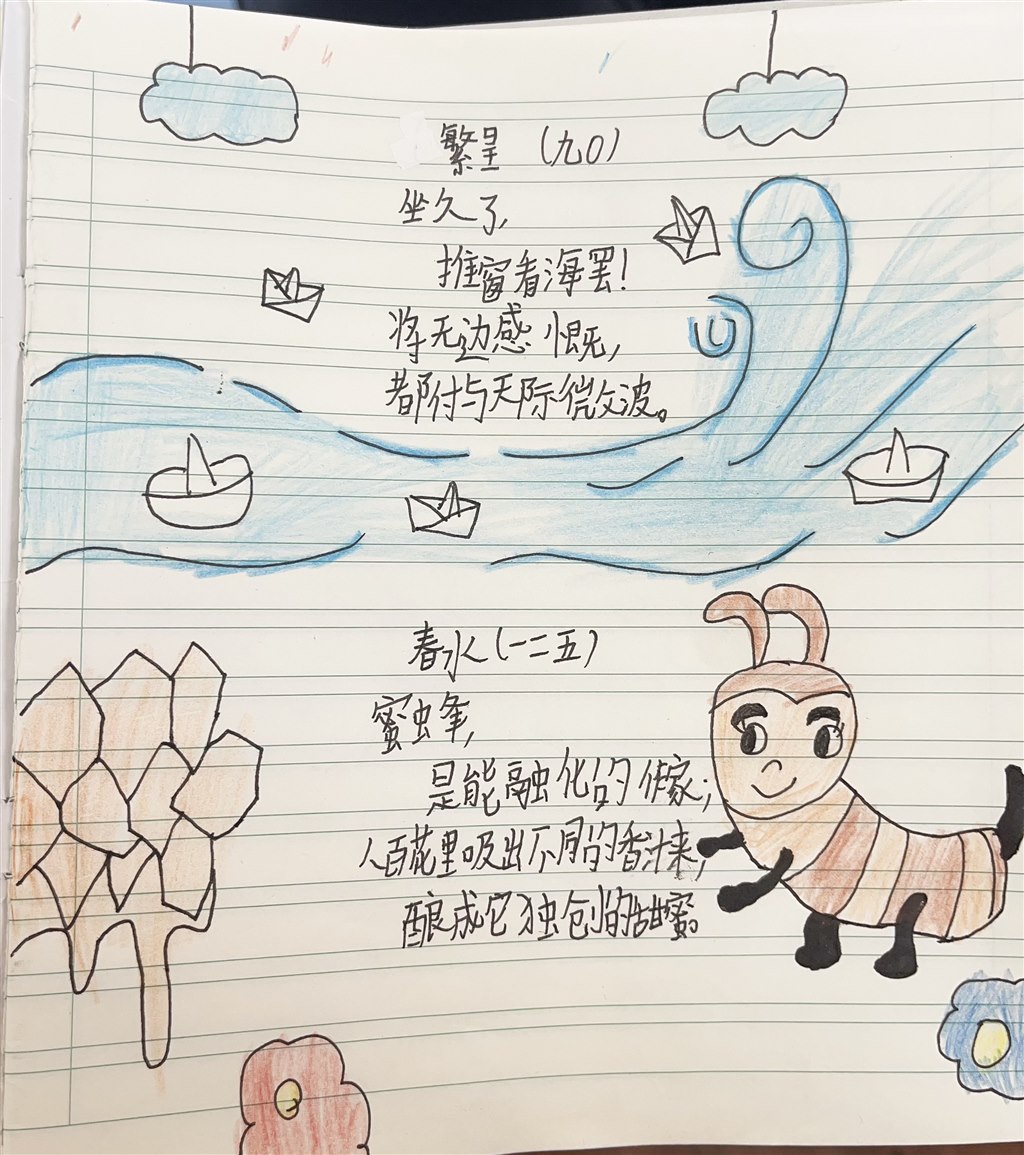 繁呈（九0）
坐久了，
推窗看海罢！
将无边感慨，
都付与天际微波。
春水（一二五）
蜜虫夆，
是能融化的作家；
人百花里吸出不同的香汁来，
酿成它独创的甜蜜。